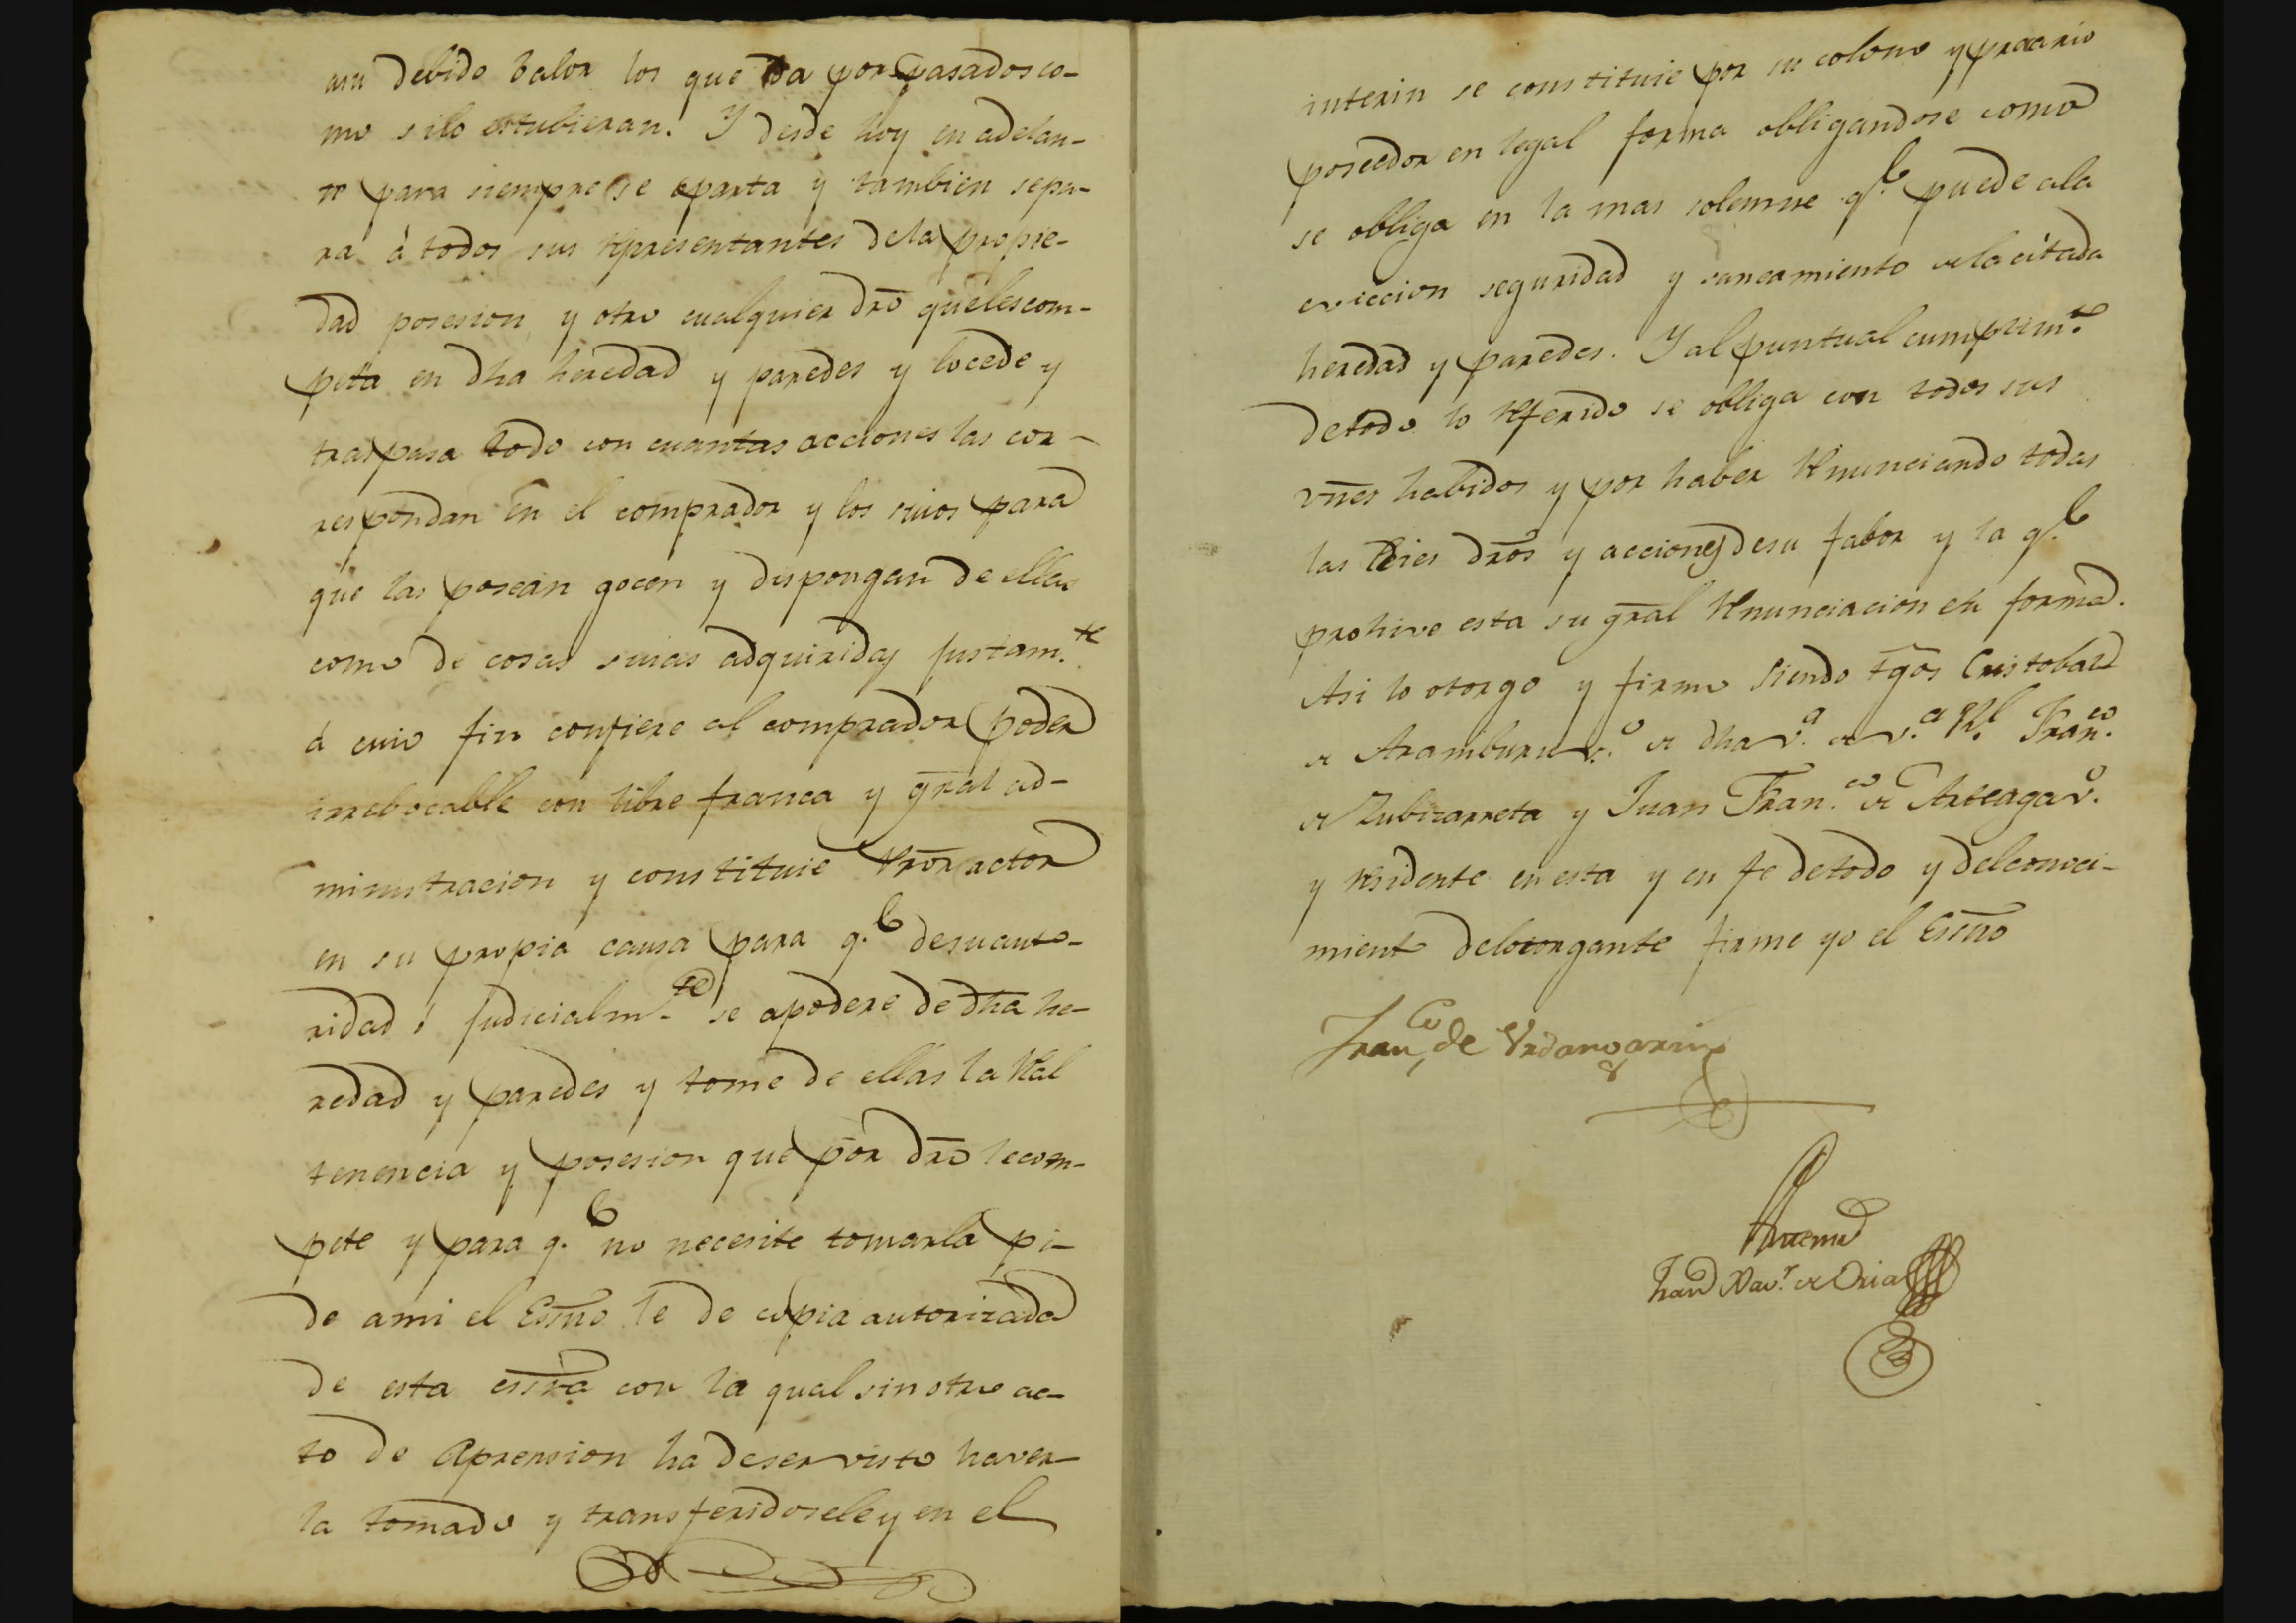 asu debido balor los que da por pasados co-
mo silo estubieran. Y desde hoy en adelan-
te para siempre se aparta y tambien sepa-
ra à todos sus Representantes dela propie-
dad posesion y otro cualquier dro quelescom-
peta en dha heredad y paredes y locede y
traspasa todo con cuantas acciones las cor-
respondan en el comprador y los suios para
que las posean gocen y dispongan de ellas
como de cosas suias adquiridas justam.te
á cuio fin confiere al comprador poder
irrebocable con libre franca y gral ad-
ministracion y constituie Pror actor
en su propia causa para q.e desuauto-
ridad ó judicialm.te se apodere de dha he-
redad y paredes y tome de ellas la Real
tenencia y posesion que por dro lecom-
pete y para q.e no necesite tomarla pi-
de ami el Essno le de copia autorizada
de esta essra con la qual sin otro ac-
to de Aprension ha deser visto haver-
la tomado y transferidosele y en el
interin se constituie por su colono y precario
poseedor en legal forma obligandose como
se obliga en la mas solemne q.e puede ala
eviccion seguridad y saneamiento de la citada
heredad y paredes. Y al puntual cumplim.to
detodo lo Referido se obliga con todos sus
vnes habidos y por haber Renunciando todas
las leies dros y acciones desu fabor y la q.e
prohive esta su gral Renunciacion en forma.
Asi lo otorgo y firmo siendo tgos Cristobal
de Aramburu v.o de dha v.a de v.a R.l Fran.co
de Zubizarreta y Juan Fran.co de Arteaga v.o
y Residente en esta y en fe detodo y delconoci-
miento delotorgante firme yo el Essno
Fran.co de Vrdangarin
Antemi
Fran.co Xav.r de Oria